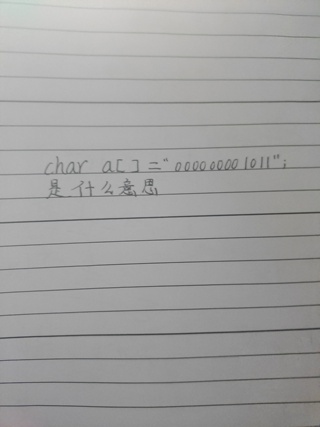 char a[ ] = "000000001011";
是什么意思